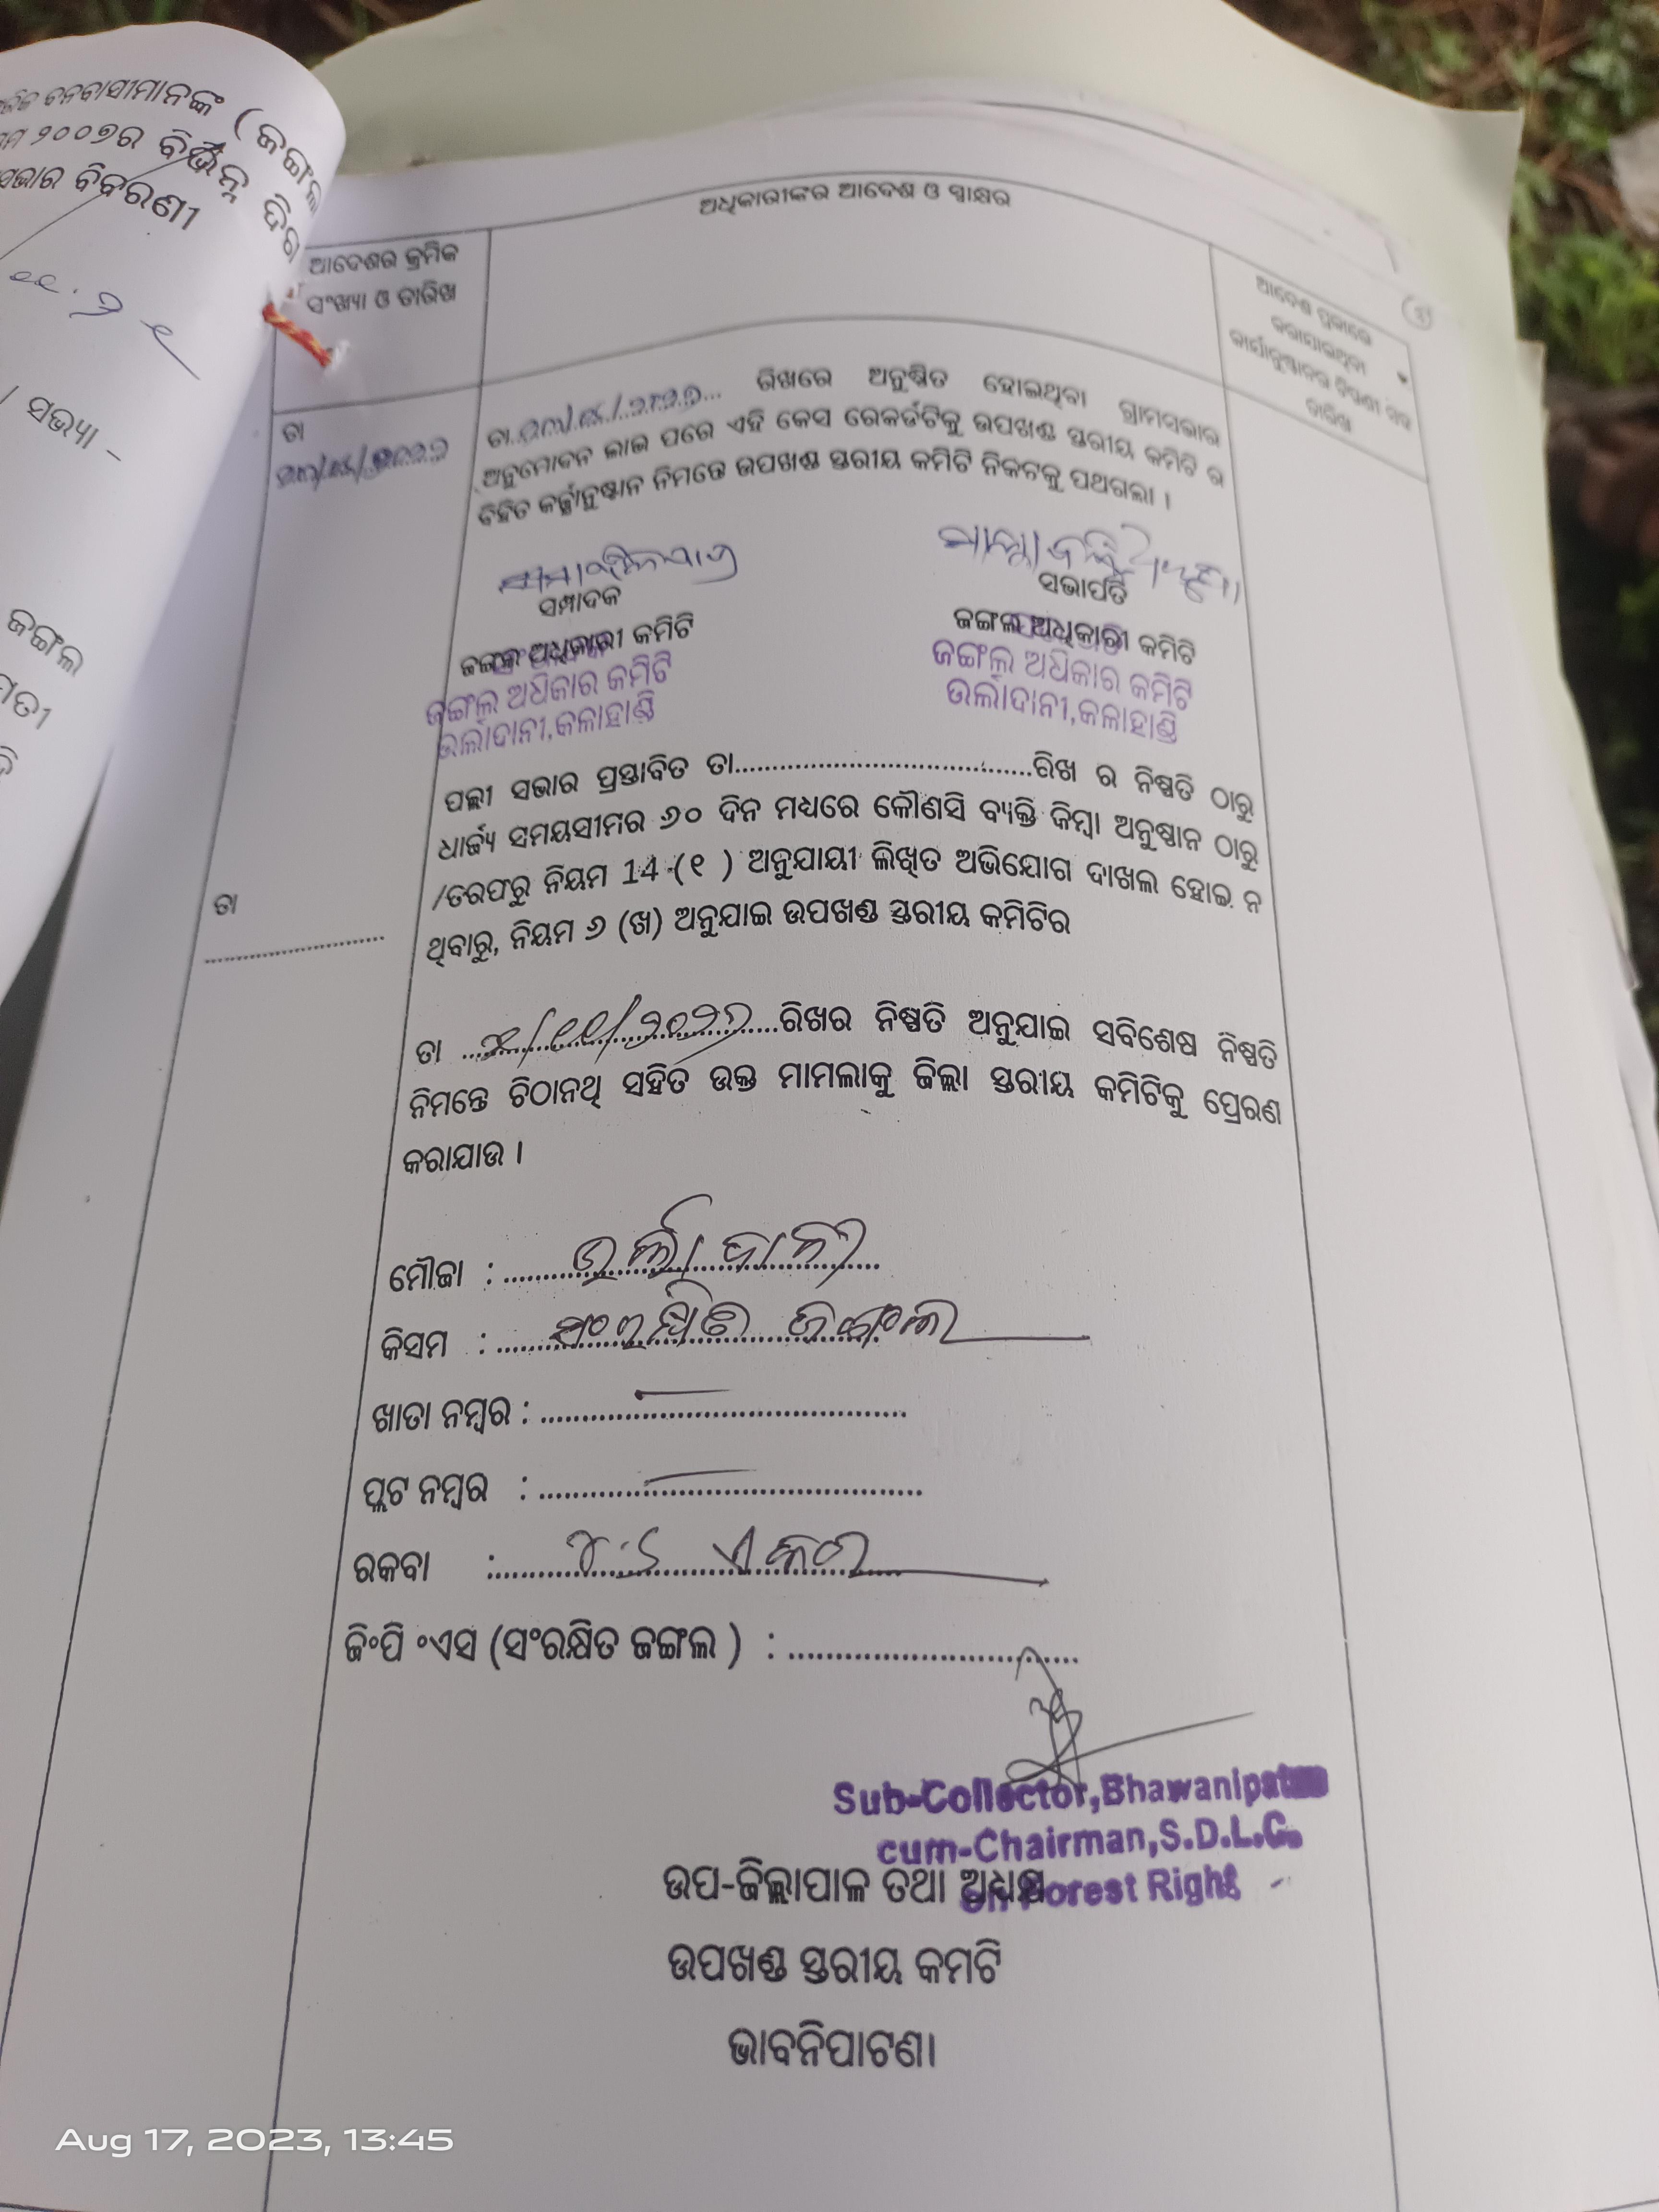 ବନବାସୀମାନଙ୍କ (ଜଙ୍ଗଲ
୨୦୦୭ର ବିଭିନ୍ନ ଦିଗ
ସଭାର ବିବରଣୀ
/ ସଭ୍ୟା -
ଜଙ୍ଗଲ
ଅଧିକାରୀଙ୍କର ଆଦେଶ ଓ ସ୍ୱାକ୍ଷର
ଆଦେଶର କ୍ରମିକ
ସଂଖ୍ୟା ଓ ତାରିଖ
ଆଦେଶ ପ୍ରକାରେ
କରାଯାଇଥିବା
କାର୍ଯ୍ୟାନୁଷ୍ଠାନର ଟିପ୍ପଣୀ ସହ
ତାରିଖ
ତା
ତା ରିଖରେ ଅନୁଷ୍ଠିତ ହୋଇଥିବା ଗ୍ରାମସଭାର
ଅନୁମୋଦନ ଲାଭ ପରେ ଏହି କେସ ରେକର୍ଡଟିକୁ ଉପଖଣ୍ଡ ସ୍ତରୀୟ କମିଟି ର
ବିହିତ କାର୍ଯ୍ୟାନୁଷ୍ଠାନ ନିମନ୍ତେ ଉପଖଣ୍ଡ ସ୍ତରୀୟ କମିଟି ନିକଟକୁ ପଥଗଲା ।
ସମ୍ପାଦକ
ଜଙ୍ଗଲ ଅଧିକାରୀ କମିଟି
ଜଙ୍ଗଲ ଅଧିକାର କମିଟି
ଉର୍ଲାଦାନୀ,କଳାହାଣ୍ଡି
ସଭାପତି
ଜଙ୍ଗଲ ଅଧିକାରୀ କମିଟି
ଜଙ୍ଗଲ ଅଧିକାର କମିଟି
ଉର୍ଲାଦାନୀ,କଳାହାଣ୍ଡି
ପଲ୍ଲୀ ସଭାର ପ୍ରସ୍ତାବିତ ତା..................................ରିଖ ର ନିଷ୍ପତି ଠାରୁ
ଧାର୍ଯ୍ୟ ସମୟସୀମର ୬୦ ଦିନ ମଧ୍ୟରେ କୌଣସି ବ୍ୟକ୍ତି କିମ୍ବା ଅନୁଷ୍ଠାନ ଠାରୁ
/ତରଫରୁ ନିୟମ 14 (୧ ) ଅନୁଯାୟୀ ଲିଖିତ ଅଭିଯୋଗ ଦାଖଲ ହୋଇ ନ
ଥିବାରୁ, ନିୟମ ୬ (ଖ) ଅନୁଯାଇ ଉପଖଣ୍ଡ ସ୍ତରୀୟ କମିଟିର
ତା
ତା ରିଖର ନିଷ୍ପତି ଅନୁଯାଇ ସବିଶେଷ ନିଷ୍ପତି
ନିମନ୍ତେ ଚିଠାନଥି ସହିତ ଉକ୍ତ ମାମଲାକୁ ଜିଲ୍ଲା ସ୍ତରୀୟ କମିଟିକୁ ପ୍ରେରଣ
କରାଯାଉ ।
ମୌଜା : ଉର୍ଲାଦାନୀ
କିସମ : ସଂରକ୍ଷିତ ଜଙ୍ଗଲ
ଖାତା ନମ୍ବର : —
ପ୍ଲଟ ନମ୍ବର : —
ରକବା : ଏକର
ଜିଂପି ଂଏସ (ସଂରକ୍ଷିତ ଜଙ୍ଗଲ ) : ..............................
Sub-Collector,Bhawanipatna
cum-Chairman,S.D.L.C.
on Forest Right
ଉପ-ଜିଲ୍ଲାପାଳ ତଥା ଅଧ୍ୟକ୍ଷ
ଉପଖଣ୍ଡ ସ୍ତରୀୟ କମଟି
ଭାବନିପାଟଣା
Aug 17, 2023, 13:45